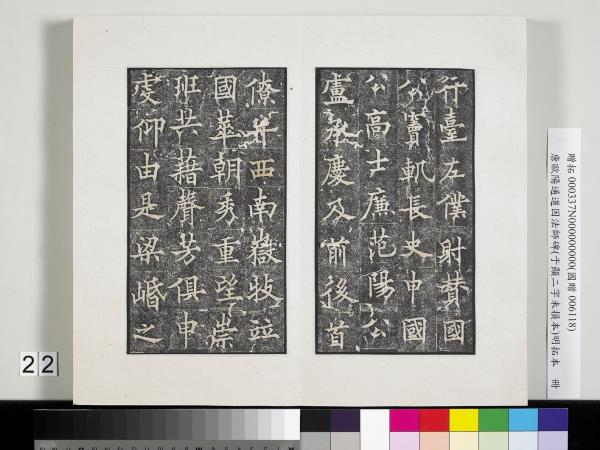 行臺左僕射贊國
公竇軌長史申國
公高士廉范陽公
盧承慶及前後首
僚并西南嶽牧並
國華朝秀重望崇
班共藉聲芳俱申
虔仰由是梁㟭之
贈拓 000337N000000000(國贈 006118)
唐歐陽通道因法師碑(于顯二字未損本)明拓本 冊
22